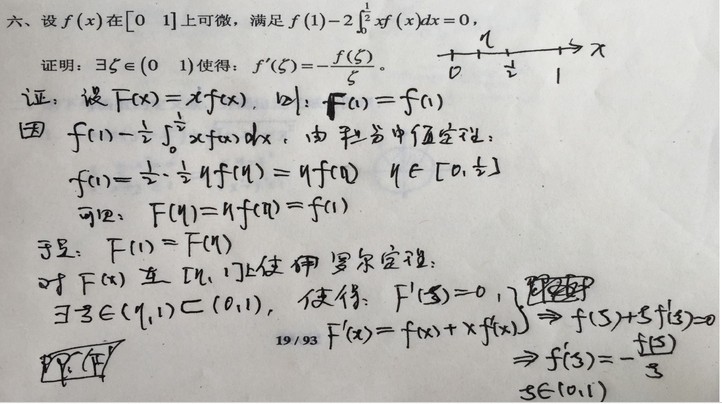 六、设 f(x) 在 [0 1] 上可微，满足 f(1)−2∫₀^{1/2} xf(x)dx=0，
证明：∃ζ∈(0 1) 使得：f′(ζ)=−f(ζ)/ζ。
0 η 1/2 1 x
证：设 F(x)=xf(x)，则：F(1)=f(1)
因 f(1)−1/2∫₀^{1/2} xf(x)dx，由积分中值定理：
f(1)=1/2·1/2 ηf(η)=ηf(η) η∈[0,1/2]
可见：F(η)=ηf(η)=f(1)
于是：F(1)=F(η)
对 F(x) 在 [η,1]上使用罗尔定理：
∃ξ∈(η,1)⊂(0,1)，使得：F′(ξ)=0，
F′(x)=f(x)+xf′(x) } ⇒ f(ξ)+ξf′(ξ)=0
19 / 93
⇒ f′(ξ)=−f(ξ)/ξ
ξ∈(0,1)